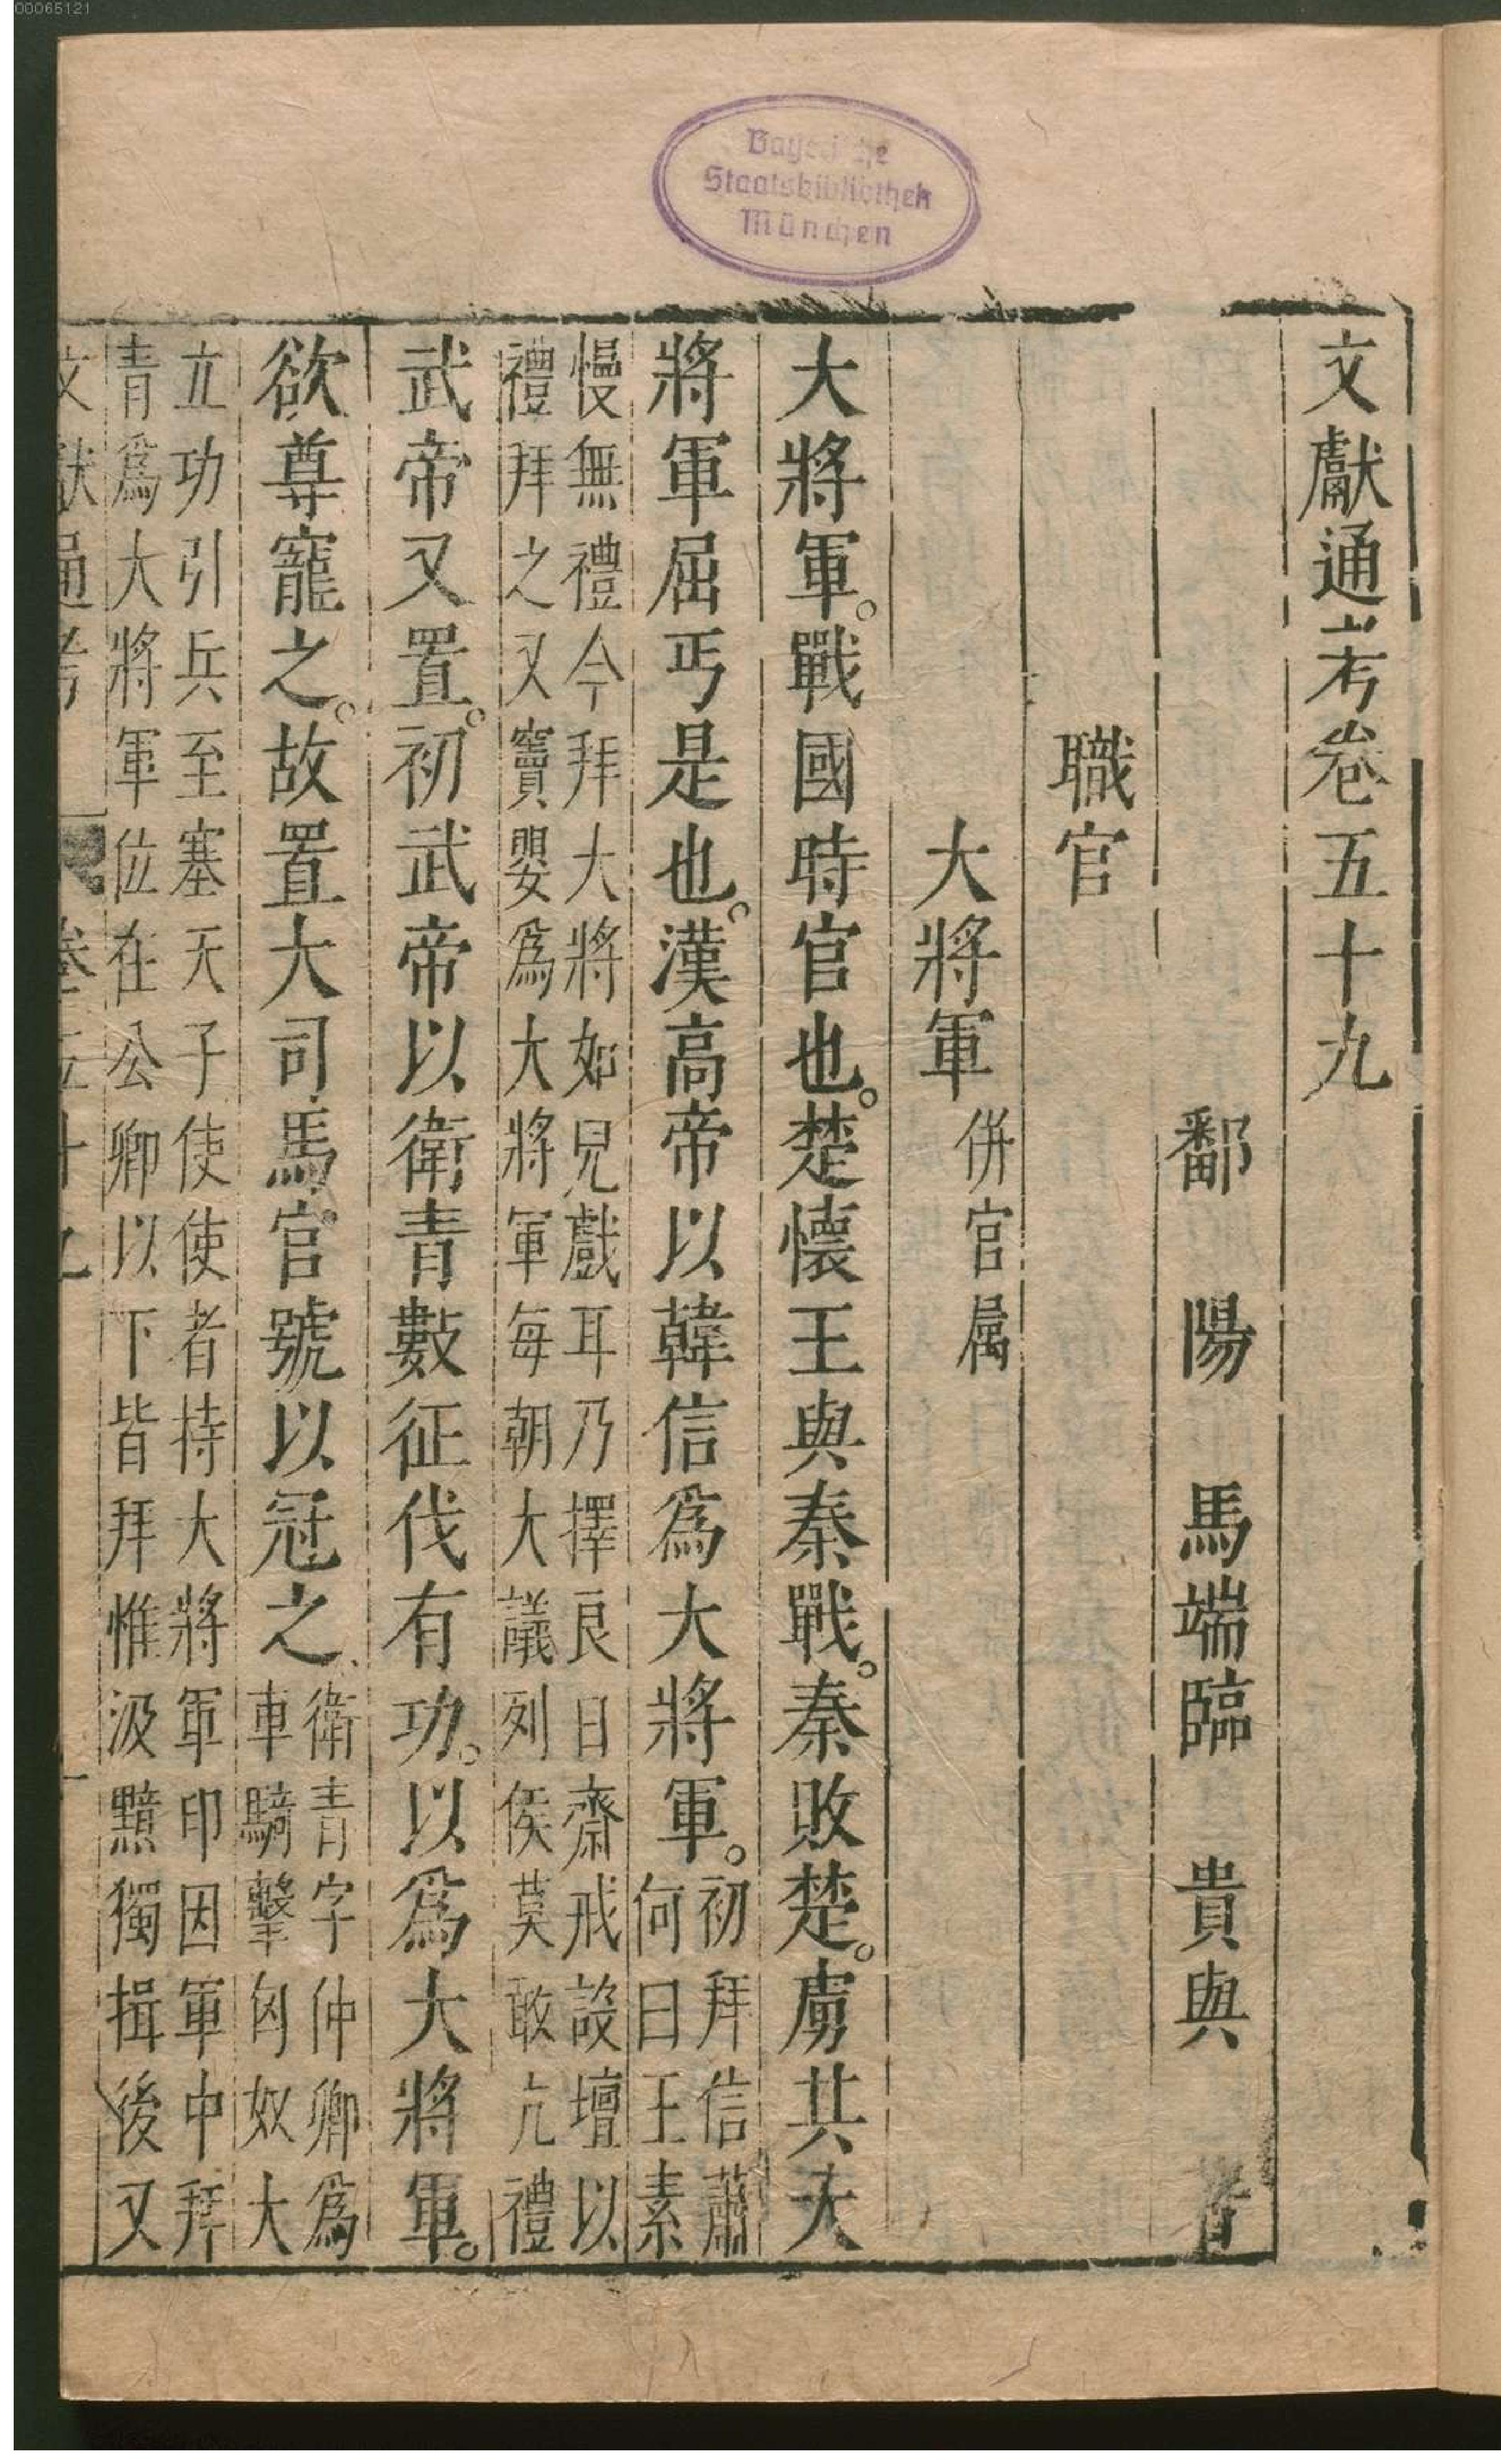 00065121
Bayerische
Staatsbibliothek
München
文獻通考卷五十九
鄱陽馬端臨貴與著
職官
大將軍併官属
大將軍。戰國時官也。楚懷王與秦戰。秦敗楚。虜其大
將軍屈丐是也。漢高帝以韓信爲大將軍。初拜信蕭
何曰王素
慢無禮今拜大將如兒戲耳乃擇良日齋戒設壇以
禮拜之又竇嬰爲大將軍每朝大議列侯莫敢亢禮
武帝又置。初武帝以衛青數征伐有功。以爲大將軍。
欲尊寵之。故置大司馬官號以冠之衛青字仲卿爲
車騎擊匈奴大
立功引兵至塞天子使使者持大將軍印因軍中拜
青爲大將軍位在公卿以下皆拜惟汲黯獨揖後又
文獻通考 卷五十九 一